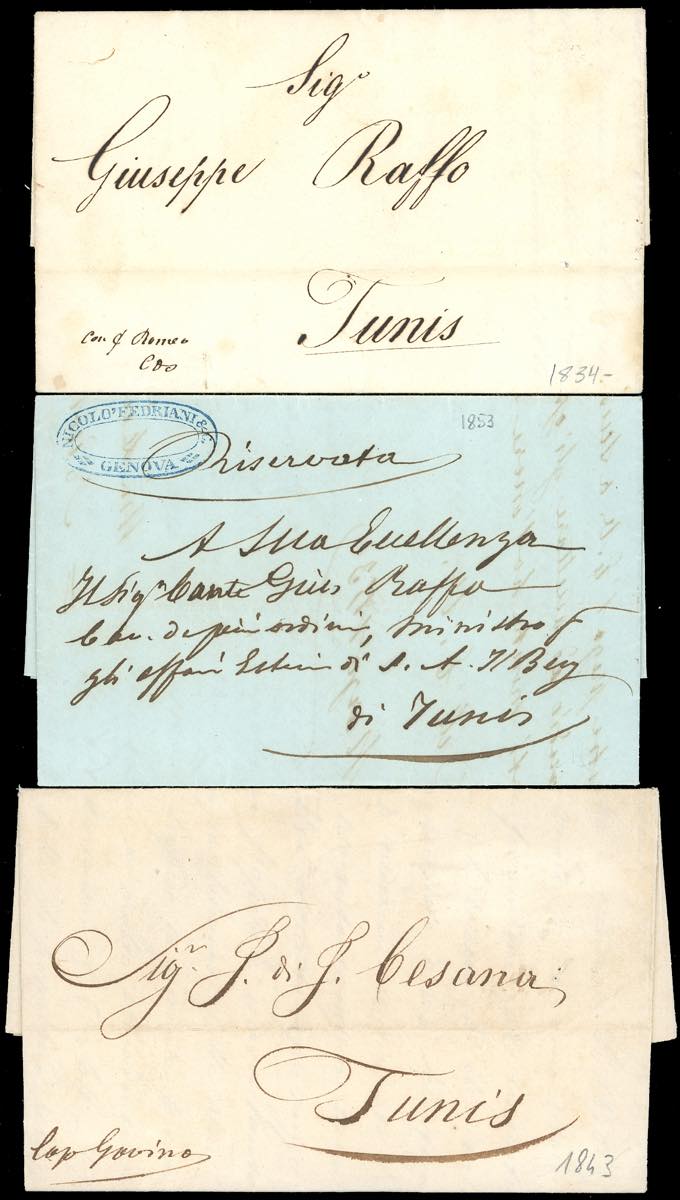 Sigo
Giuseppe Raffo
Tunis
1834-
NICOLO' FEDRIANI & C.
GENOVA
1853
Riservata
A Sua Eccellenza
Il Sigr Conte Gius Raffo
Cav. di più ordini, Ministro
gli affari Esteri di S. A. Il Bey
di Tunis
Sigr J. di J. Cesana
Tunis
Cap Gavino
1843